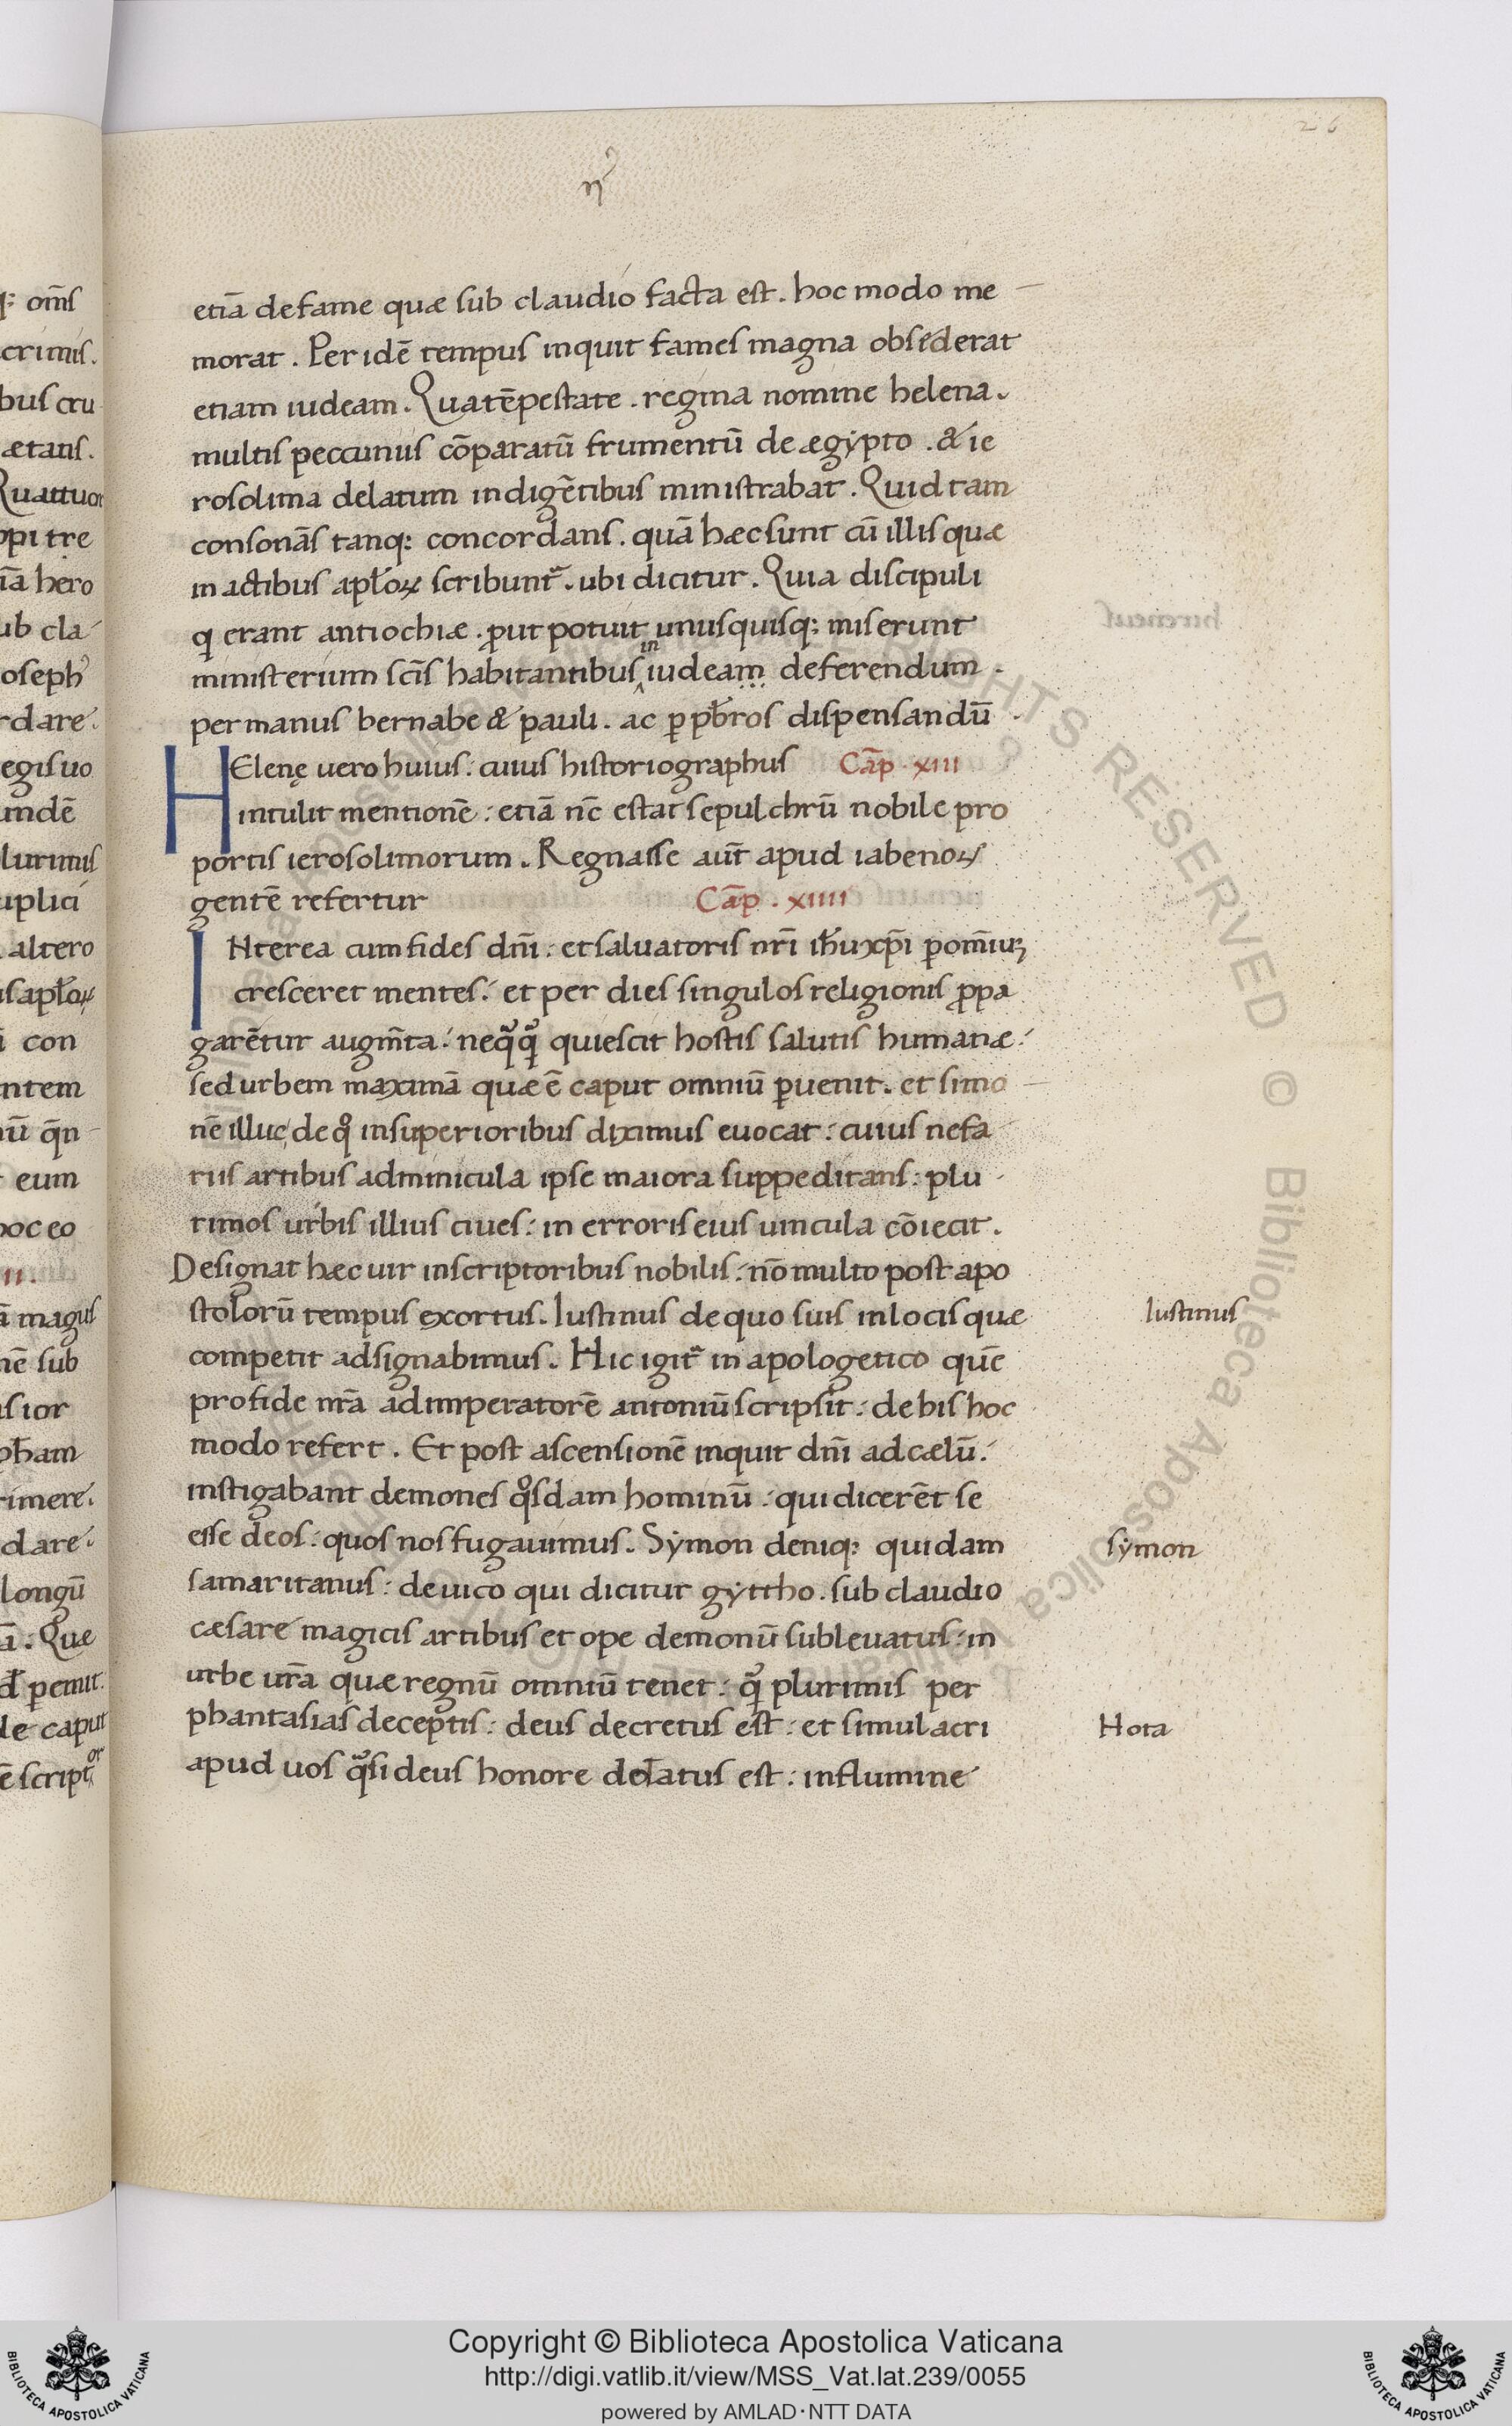 26
etiā de fame quæ sub claudio facta est. hoc modo me
morat. Per idē tempus inquit fames magna obsederat
etiam iudeam. Qua tēpestate. regina nomine helena.
multis peccuniis cōparatū frumentū de ægẏpto. & ie
rosolima delatum indigētibus ministrabat. Quid tam
consonās tanq; concordans. quā hæc sunt cū illis quæ
in actibus apłoꝝ scribunt᷑. ubi dicitur. Quia discipuli
q erant antiochiæ. ꝓut potuit unusquisq; miserunt
ministerium scīs habitantibus in iudeam deferendum.
per manus bernabe & pauli. ac ꝑ pb̄ros dispensandū
HElenę uero huius: cuius historiographus Cāp. xiii
intulit mentionē: etiā nc̄ estat sepulchrū nobile pro
portis ierosolimorum. Regnasse aut̄ apud iabenoꝝ
gentē refertur Cāp. xiiii
INterea cum fides dn̄i: et saluatoris nr̄i ih̄u xp̄i ꝑ om̄iuꝫ
cresceret mentes: et per dies singulos religionis ꝓpa
garētur augm̄ta: neqͣqͣ quiescit hostis salutis humanæ:
sed urbem maximā quæ ē caput omniū ꝑuenit. et simo
nē illuc, de qͦ in superioribus diximus euocat: cuius nefa
riis artibus adminicula ipse maiora suppeditans: plu
rimos urbis illius ciues: in erroris eius uincula cōiecit.
Designat hæc uir in scriptoribus nobilis: nō multo post apo
stolorū tempus exortus. Iustinus de quo suis in locis quæ
Iustinus
competit adsignabimus. Hic igit᷑ in apologetico quē
pro fide nr̄a ad imperatorē antoniū scripsit: de his hoc
modo refert. Et post ascensionē inquit dn̄i ad cælū:
instigabant demones qͦsdam hominū: qui dicerēt se
esse deos: quos nos fugauimus. Sẏmon deniq; quidam
sẏmon
samaritanus: de uico qui dicitur gẏttho. sub claudio
cæsare magicis artibus et ope demonū subleuatus: in
urbe ur̄a quæ regnū omniū tenet: qͣ plurimis per
phantasias deceptis: deus decretus est: et simulacri
Nota
apud uos qͣsi deus honore delatus est: in flumine
Copyright © Biblioteca Apostolica Vaticana
http://digi.vatlib.it/view/MSS_Vat.lat.239/0055
powered by AMLAD·NTT DATA